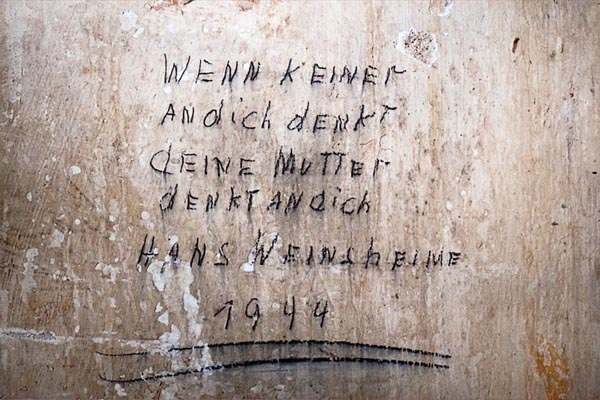 WENN KEINER
ANdich dENKT
dEINE MUTTER
dENKT ANdich
HANS WEINShEIME
1944